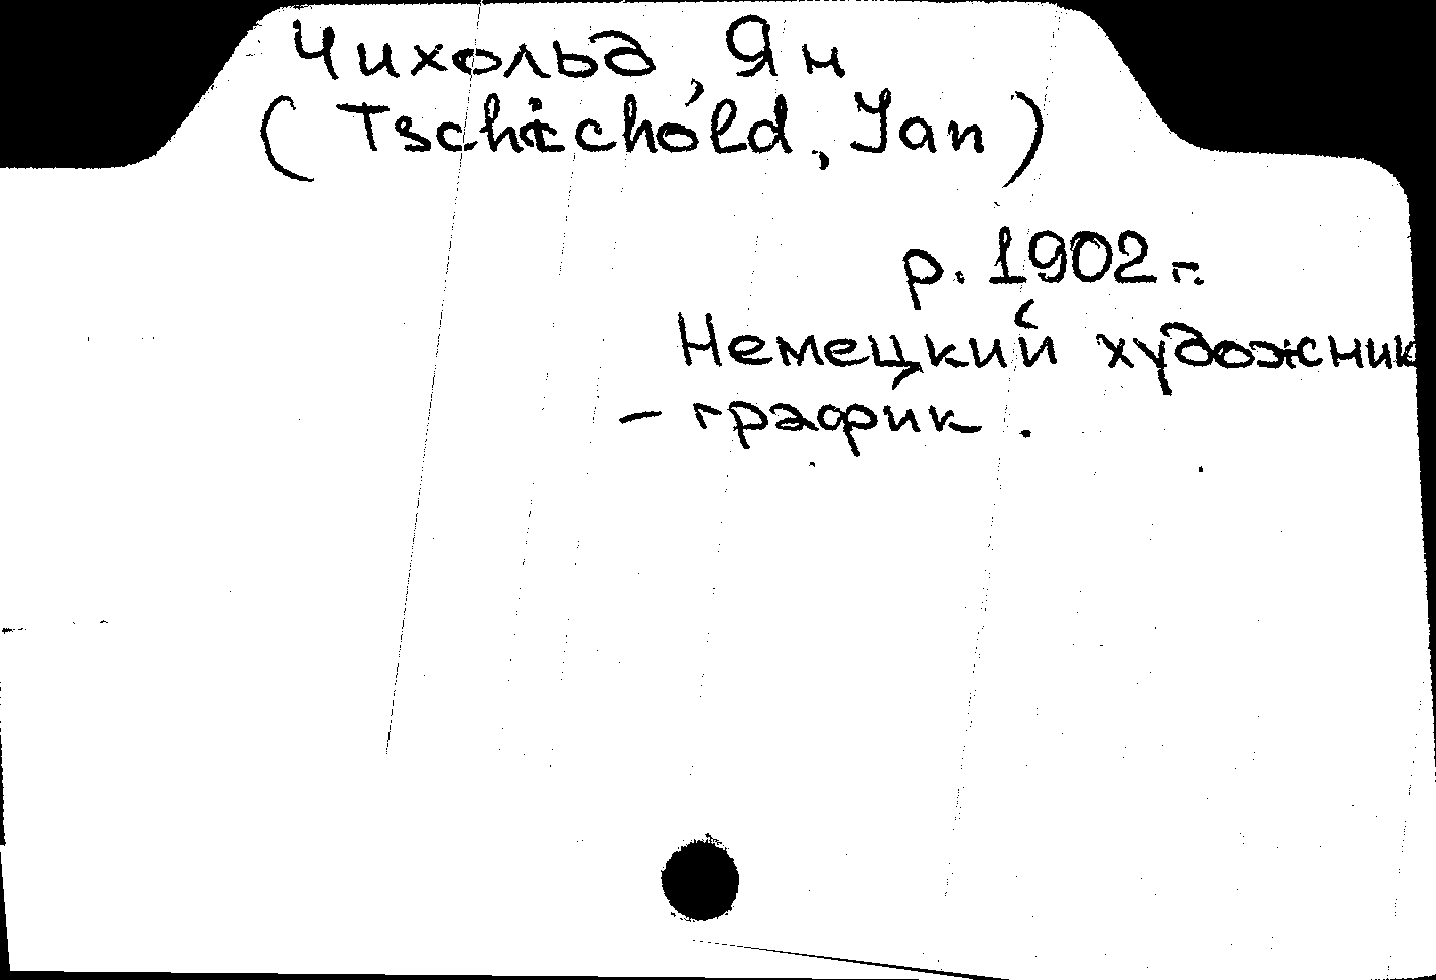 Чихольд, Ян
(Tschichold, Jan)
р. 1902 г.
Немецкий художник
- график.